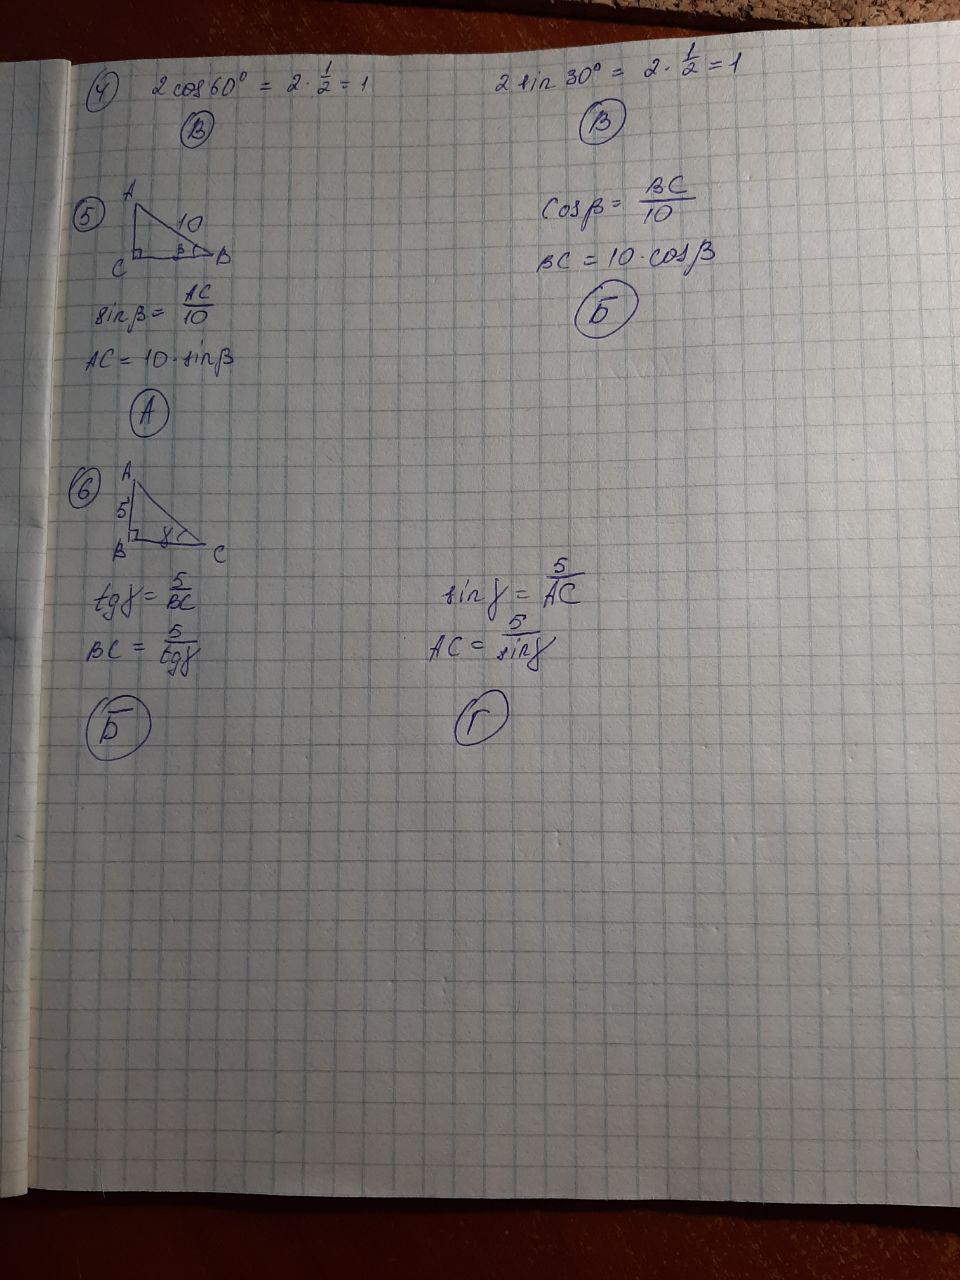 4 2 cos 60° = 2 · 1/2 = 1
В
2 sin 30° = 2 · 1/2 = 1
В
5
A
10
β
C
B
sin β = AC/10
AC = 10 · sin β
А
cos β = BC/10
BC = 10 · cos β
Б
6
A
5
B
γ
C
tg γ = 5/BC
BC = 5/tg γ
Б
sin γ = 5/AC
AC = 5/sin γ
Г